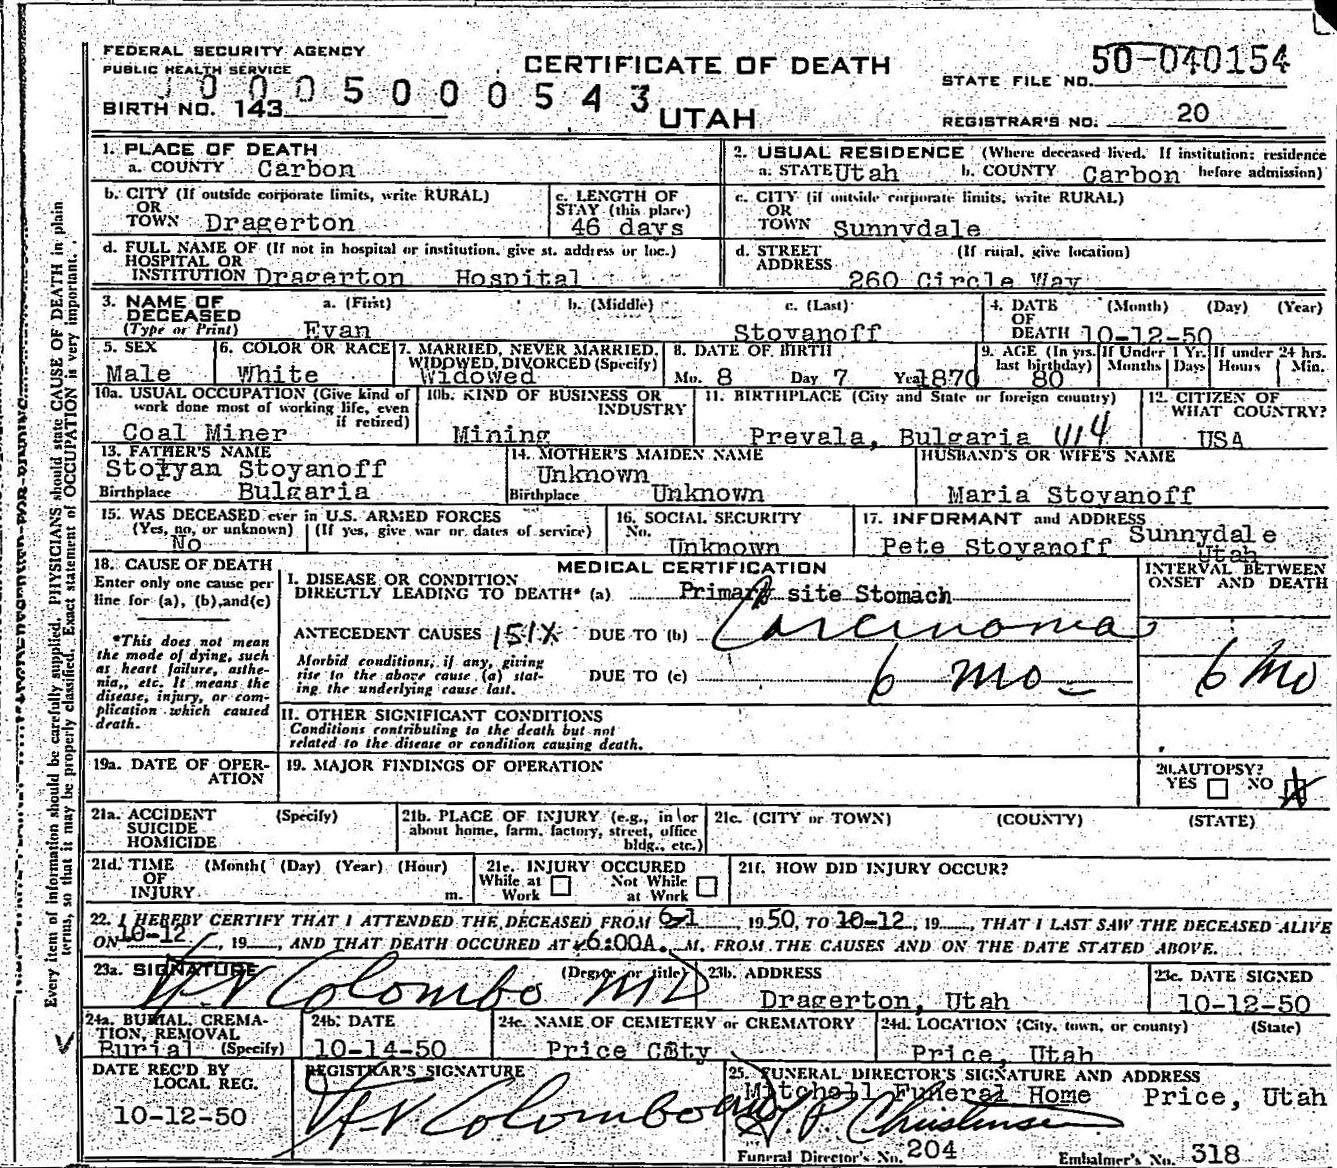 FEDERAL SECURITY AGENCY
PUBLIC HEALTH SERVICE
CERTIFICATE OF DEATH
STATE FILE NO. 50-040154
0005000543
BIRTH NO. 143
UTAH
REGISTRAR'S NO. 20
Every item of information should be carefully supplied. PHYSICIANS should state CAUSE OF DEATH in plain
terms, so that it may be properly classified. Exact statement of OCCUPATION is very important.
1. PLACE OF DEATH
a. COUNTY Carbon
2. USUAL RESIDENCE (Where deceased lived. If institution: residence
a. STATE Utah b. COUNTY Carbon before admission)
b. CITY (If outside corporate limits, write RURAL)
OR
TOWN Dragerton
c. LENGTH OF
STAY (this place)
46 days
c. CITY (if outside corporate limits, write RURAL)
OR
TOWN Sunnydale
d. FULL NAME OF (If not in hospital or institution, give st. address or loc.)
HOSPITAL OR
INSTITUTION Dragerton Hospital
d. STREET (If rural, give location)
ADDRESS
260 Circle Way
3. NAME OF a. (First) b. (Middle) c. (Last)
DECEASED
(Type or Print) Evan Stoyanoff
4. DATE (Month) (Day) (Year)
OF
DEATH 10-12-50
5. SEX
Male
6. COLOR OR RACE
White
7. MARRIED, NEVER MARRIED,
WIDOWED, DIVORCED (Specify)
Widowed
8. DATE OF BIRTH
Mo. 8 Day 7 Year 1870
9. AGE (In yrs. last birthday)
80
If Under 1 Yr.
Months Days
If under 24 hrs.
Hours Min.
10a. USUAL OCCUPATION (Give kind of
work done most of working life, even
if retired)
Coal Miner
10b. KIND OF BUSINESS OR
INDUSTRY
Mining
11. BIRTHPLACE (City and State or foreign country)
Prevala, Bulgaria
12. CITIZEN OF
WHAT COUNTRY?
USA
13. FATHER'S NAME
Stoyan Stoyanoff
Birthplace Bulgaria
14. MOTHER'S MAIDEN NAME
Unknown
Birthplace Unknown
HUSBAND'S OR WIFE'S NAME
Maria Stoyanoff
15. WAS DECEASED ever in U.S. ARMED FORCES
(Yes, no, or unknown) (If yes, give war or dates of service)
No
16. SOCIAL SECURITY
No.
Unknown
17. INFORMANT and ADDRESS
Pete Stoyanoff Sunnydale
Utah
18. CAUSE OF DEATH
Enter only one cause per
line for (a), (b), and (c)
*This does not mean
the mode of dying, such
as heart failure, asthe-
nia, etc. It means the
disease, injury, or com-
plication which caused
death.
MEDICAL CERTIFICATION
INTERVAL BETWEEN
ONSET AND DEATH
I. DISEASE OR CONDITION
DIRECTLY LEADING TO DEATH* (a) Primary site Stomach
ANTECEDENT CAUSES 151X DUE TO (b) Carcinoma
Morbid conditions, if any, giving
rise to the above cause (a) stat-
ing the underlying cause last.
DUE TO (c) 6 mo- 6 Mo
II. OTHER SIGNIFICANT CONDITIONS
Conditions contributing to the death but not
related to the disease or condition causing death.
19a. DATE OF OPER-
ATION
19. MAJOR FINDINGS OF OPERATION
20. AUTOPSY?
YES NO X
21a. ACCIDENT (Specify)
SUICIDE
HOMICIDE
21b. PLACE OF INJURY (e.g., in or
about home, farm, factory, street, office
bldg., etc.)
21c. (CITY or TOWN) (COUNTY) (STATE)
21d. TIME (Month( (Day) (Year) (Hour)
OF
INJURY m.
21e. INJURY OCCURED
While at Work Not While at Work
21f. HOW DID INJURY OCCUR?
22. I HEREBY CERTIFY THAT I ATTENDED THE DECEASED FROM 6-1, 1950, TO 10-12, 19, THAT I LAST SAW THE DECEASED ALIVE
ON 10-12, 19, AND THAT DEATH OCCURED AT 6:00A. M. FROM THE CAUSES AND ON THE DATE STATED ABOVE.
23a. SIGNATURE (Degree or title)
Colombo MD
23b. ADDRESS
Dragerton, Utah
23c. DATE SIGNED
10-12-50
24a. BURIAL, CREMA-
TION, REMOVAL
Burial (Specify)
24b. DATE
10-14-50
24c. NAME OF CEMETERY or CREMATORY
Price City
24d. LOCATION (City, town, or county) (State)
Price, Utah
DATE REC'D BY
LOCAL REG.
10-12-50
REGISTRAR'S SIGNATURE
Colombo
25. FUNERAL DIRECTOR'S SIGNATURE AND ADDRESS
Mitchell Funeral Home Price, Utah
Christensen
Funeral Director's No. 204 Embalmer's No. 318